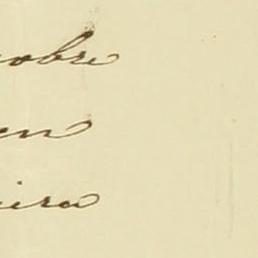 obre
en
ira